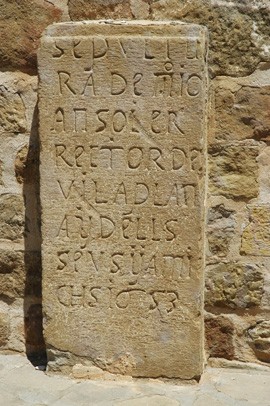 SEPULTU
RA DE Mº IO
AN SOLER
RECTOR DE
VILADLAN
AY DELLS
SEUS UA MI
CHS 1653